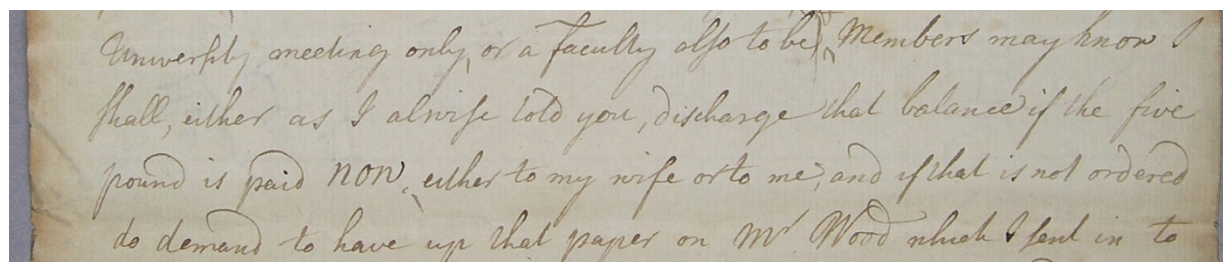 Universsity meeting only, or a faculty also to be) Members may know I
shall, either as I alwise told you, discharge that balance if the five
pound is paid NOW, either to my wife or to me, and if that is not ordered
do demand to have up that paper on Mr Wood which I sent in to